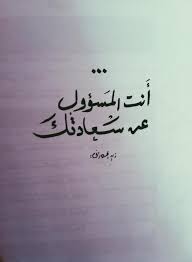 ...
أَنت المسؤول
عن سعادتك